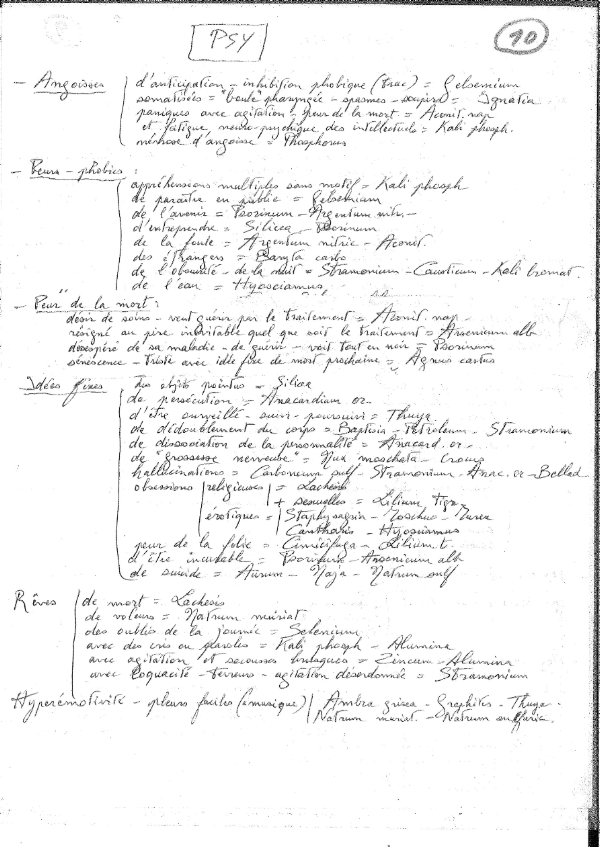 PSY
10
- Angoisses
d'anticipation - inhibition phobique (trac) = Gelsemium
somatisées = "boule" pharyngée - spasmes - soupirs = Ignatia
paniques avec agitation - peur de la mort = Aconit. nap
et fatigue neuro-psychique des intellectuels = Kali phosph.
névrose d'angoisse = Phosphorus
- Peurs - phobies :
appréhensions multiples sans motif = Kali phosph
de paraître en public = Gelsemium
de l'avenir = Psorinum - Argentum nitr.
d'entreprendre = Silicea - Psorinum
de la foule = Argentum nitric - Aconit.
des étrangers = Baryta carb.
de l'obscurité - de la nuit = Stramonium - Causticum - Kali bromat.
de l'eau = Hyosciamus
- Peur" de la mort :
désir de soins - veut guérir par le traitement = Aconit. nap.
résigné au pire inévitable quel que soit le traitement = Arsenicum alb
désespéré de sa maladie - de guérir - voit tout en noir = Psorinum
sénescence - triste avec idée fixe de mort prochaine = Agnus castus
- Idées fixes
des objets pointus = Silicea
de persécution = Anacardium or.
d'être surveillé - suivi - poursuivi = Thuya
de dédoublement du corps = Baptisia - Petroleum - Stramonium
de dissociation de la personnalité" = Anacard. or.
de "grossesse nerveuse" = Nux moschata - Crocus
hallucinations = Carboneum sulf - Stramonium - Anac. or - Bellad
obsessions religieuses = Lachesis
+ sexuelles = Lilium tigr.
érotiques = Staphysagria - Moschus - Murex
Cantharis - Hyosciamus
peur de la folie = Cimicifuga - Lilium t.
d'être incurable = Psorinum - Arsenicum alb
de suicide = Aurum - Naja - Natrum sulf
Rêves
de mort = Lachesis
de voleurs = Natrum muriat.
des oublis de la journée = Selenium
avec des cris ou paroles = Kali phosph - Alumina
avec agitation et secousses brusques = Zincum - Alumina
avec loquacité - terreurs - agitation désordonnée = Stramonium
Hyperémotivité - pleurs faciles (à musique) Ambra grisea - Graphites - Thuya -
Natrum muriat. - Natrum sulfuric.